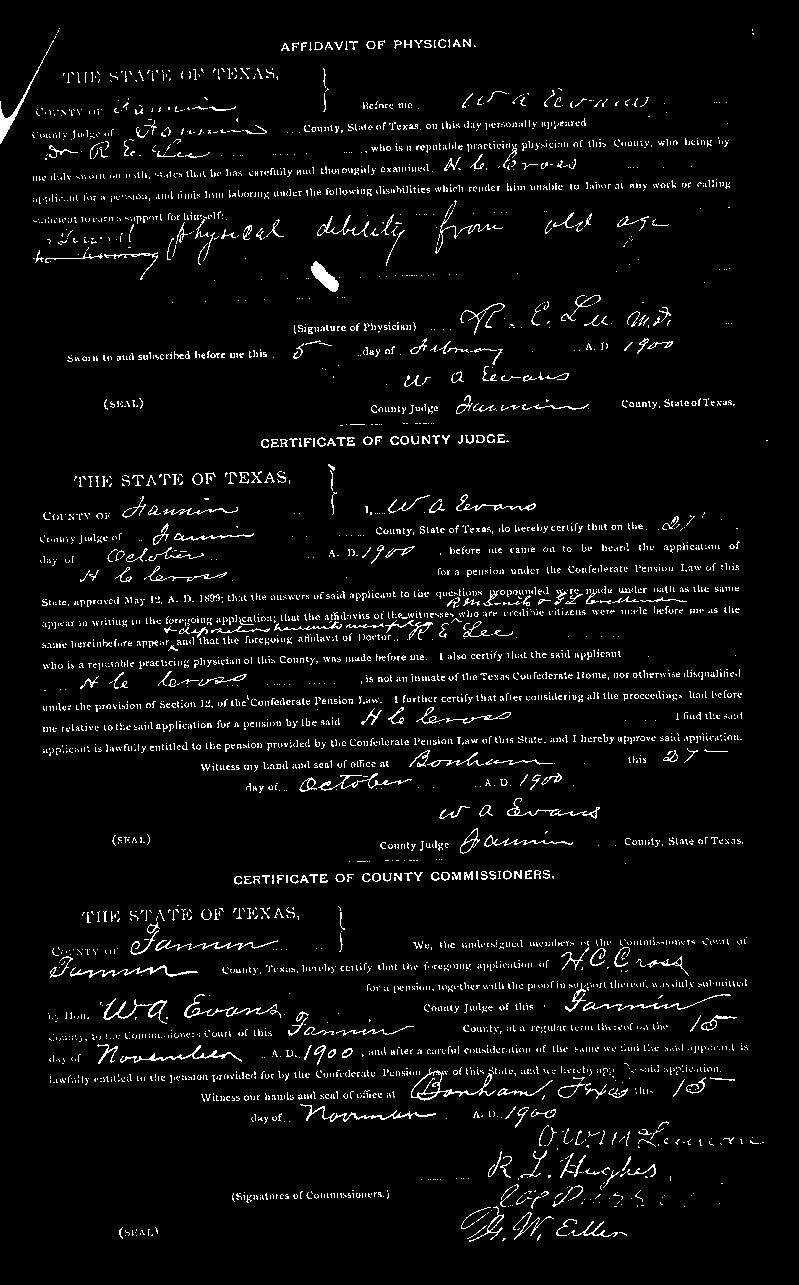 AFFIDAVIT OF PHYSICIAN.
THE STATE OF TEXAS,
COUNTY OF Fannin } Before me, W A Evans
County Judge of Fannin County, State of Texas, on this day personally appeared
Dr R. E. Lee, who is a reputable practicing physician of this County, who being by
me duly sworn on oath, states that he has carefully and thoroughly examined, H. C. Cross
applicant for a pension, and finds him laboring under the following disabilities which render him unable to labor at any work or calling
sufficient to earn a support for himself:
physical debility from old age
(Signature of Physician) R. E. Lee M.D.
Sworn to and subscribed before me this 5 day of February A. D. 1900
W A Evans
(SEAL) County Judge Fannin County, State of Texas.
CERTIFICATE OF COUNTY JUDGE.
THE STATE OF TEXAS,
COUNTY OF Fannin } I, W A Evans
County Judge of Fannin County, State of Texas, do hereby certify that on the 27
day of October A. D. 1900, before me came on to be heard the application of
H C Cross for a pension under the Confederate Pension Law of this
State, approved May 12, A. D. 1899; that the answers of said applicant to the questions propounded were made under oath as the same
appear in writing in the foregoing application; that the affidavits of the witnesses who are credible citizens were made before me as the
same hereinbefore appear, and that the foregoing affidavit of Doctor R E Lee
who is a reputable practicing physician of this County, was made before me. I also certify that the said applicant
H C Cross, is not an inmate of the Texas Confederate Home, nor otherwise disqualified
under the provision of Section 12, of the Confederate Pension Law. I further certify that after considering all the proceedings had before
me relative to the said application for a pension by the said H C Cross I find the said
applicant is lawfully entitled to the pension provided by the Confederate Pension Law of this State, and I hereby approve said application.
Witness my hand and seal of office at Bonham this 27
day of October A. D. 1900
W A Evans
(SEAL) County Judge Fannin County, State of Texas.
CERTIFICATE OF COUNTY COMMISSIONERS.
THE STATE OF TEXAS,
COUNTY OF Fannin } We, the undersigned members of the Commissioners Court of
Fannin County, Texas, hereby certify that the foregoing application of H. C. Cross
for a pension, together with the proof in support thereof, was duly submitted
by Hon. W. A. Evans County Judge of this Fannin
County, to the Commissioners Court of this Fannin County, at a regular term thereof on the 15
day of November A. D. 1900, and after a careful consideration of the same we find the said applicant is
lawfully entitled to the pension provided for by the Confederate Pension Law of this State, and we hereby said application.
Witness our hands and seal of office at Bonham, Texas this 15
day of A. D. 1900
R. L. Hughes
(Signatures of Commissioners.)
(SEAL)